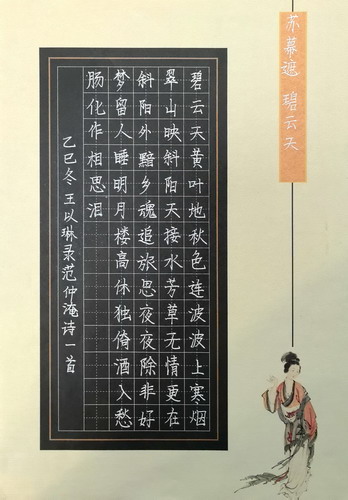 苏幕遮 碧云天
碧云天黄叶地秋色连波波上寒烟
翠山映斜阳天接水芳草无情更在
斜阳外黯乡魂追旅思夜夜除非好
梦留人睡明月楼高休独倚酒入愁
肠化作相思泪
乙巳冬王以琳录范仲淹诗一首